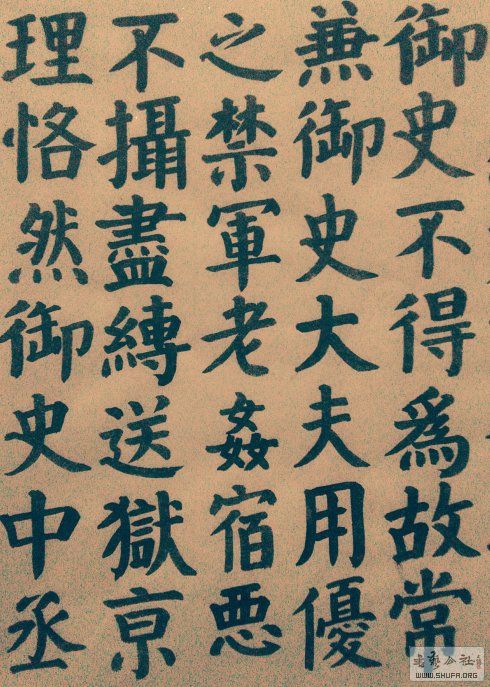 御史不得為故常
兼御史大夫用優
之禁軍老姦宿悪
不攝盡縛送獄京
理恪然御史中丞
WWW.SHUFA.ORG